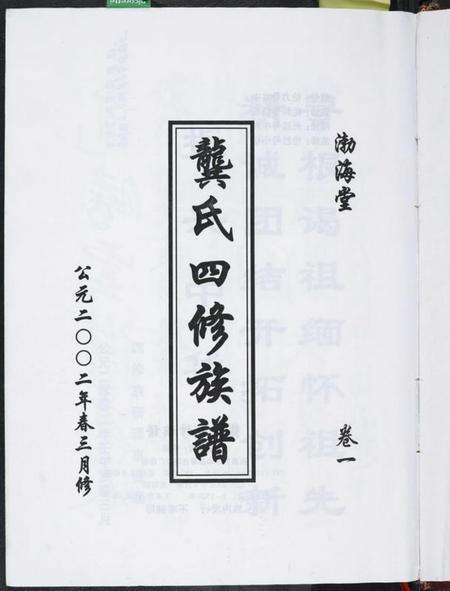 渤海堂
卷一
龔氏四修族譜
公元二〇〇二年春三月修